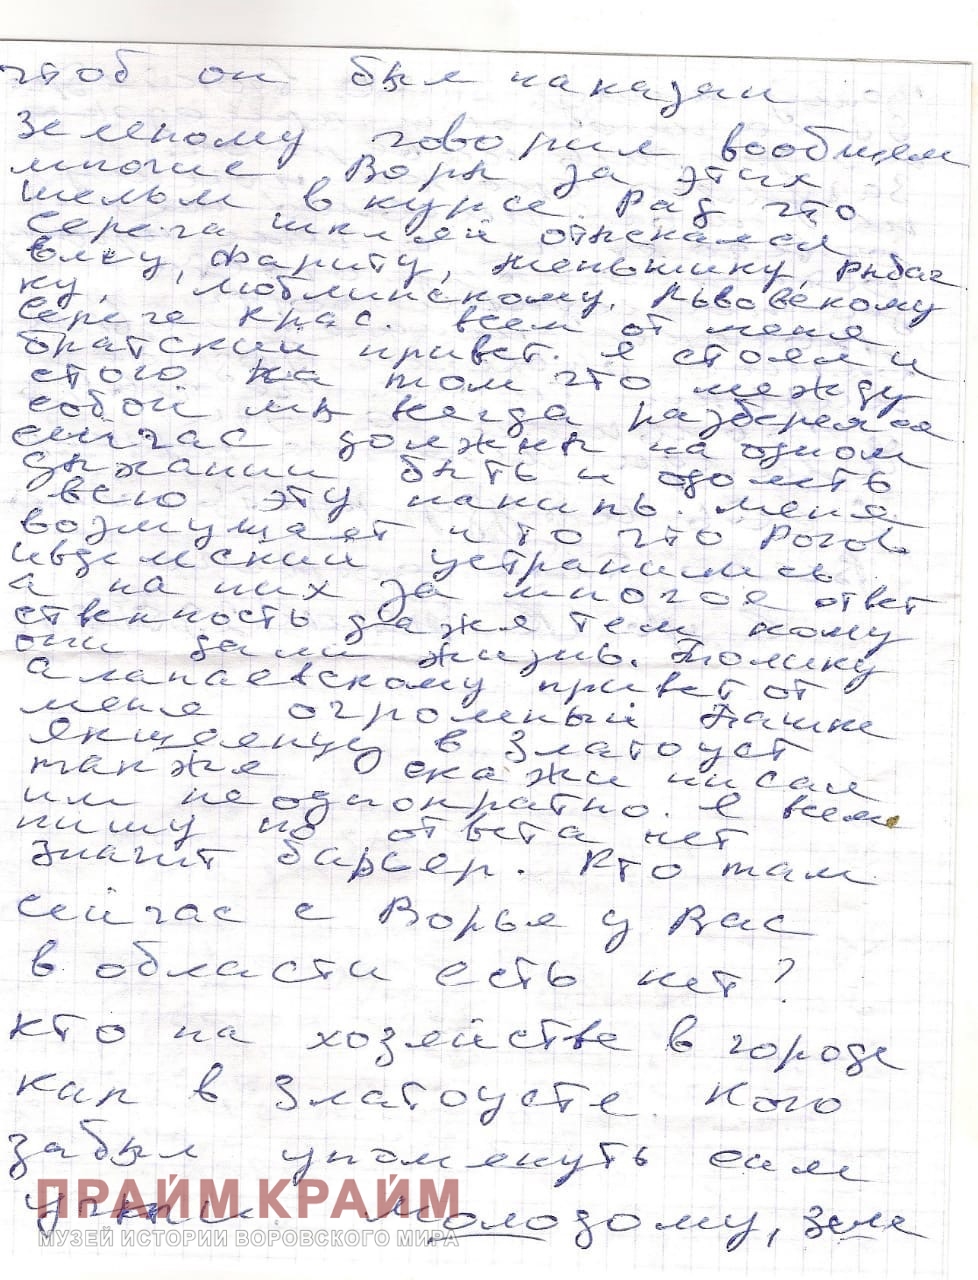 чтоб он был наказан
Зеленому говорил вообщем
многие Воры за этих
шельм в курсе. Рад что
Серега шкляй отыскался
Влку, Фариту, женьшику, рыбач
ку, люблинскому, Львовскому
Сереге Крас. всем от меня
братский привет. Я стоял и
стою на том что между
собой мы всегда разберемся
сейчас должны на одном
дыхании быть и одолеть
всю эту накипь. меня
возмущает и то что Рогов.
ивдельский устранились
а на них за многое ответ
ственность даже тем кому
они дали жизнь. Толику
Алапаевскому привет от
меня огромный Пашке
в Златоуст
также скажи писал
им неоднократно. Я всем
пишу но ответа нет
значит барьер. Кто там
сейчас с Ворья у Вас
в области есть нет?
кто на хозяйстве в городе
как в Златоусте. Кого
забыл упомянуть сам
Молодому, зеле
ПРАЙМ КРАЙМ
МУЗЕЙ ИСТОРИИ ВОРОВСКОГО МИРА